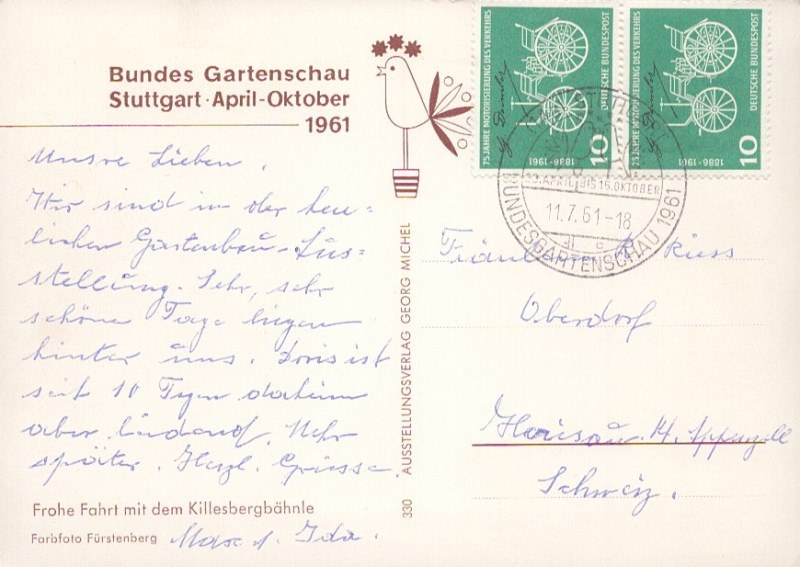 Bundes Gartenschau
Stuttgart · April-Oktober
1961
Unsre Lieben,
Wir sind in der herr=
lichen Gartenbau-Aus=
stellung. Sehr, sehr
schöne Tage liegen
hinter uns. Doris ist
seit 10 Tagen daheim
aber leidend. Mehr
später. Herzl. Grüsse
Max u. Ida.
Frohe Fahrt mit dem Killesbergbähnle
Farbfoto Fürstenberg
330 AUSSTELLUNGSVERLAG GEORG MICHEL
75 JAHRE MOTORISIERUNG DES VERKEHRS
DEUTSCHE BUNDESPOST
1886-1961
10
75 JAHRE MOTORISIERUNG DES VERKEHRS
DEUTSCHE BUNDESPOST
1886-1961
10
APRIL BIS 16. OKTOBER
11.7.61-18
BUNDESGARTENSCHAU 1961
Fräulein
Oberdorf
Herisau, Kt. Appenzell
Schweiz.